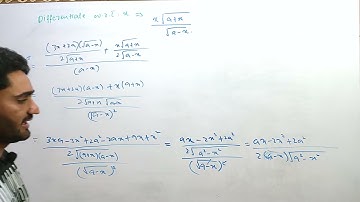 Differentiate w.r.t. x ⇒ x√(a+x) / √(a-x)
(3x+2a)(√(a-x)) / 2√(a+x) + x√(a+x) / 2√(a-x)
(a-x)
(3x+2a)(a-x) + x(a+x)
2√(a+x) √(a-x)
(√(a-x))²
= 3xa-3x²+2a²-2ax+ax+x² / 2√((a+x)(a-x)) = ax-2x²+2a² / 2√(a²-x²) = ax-2x²+2a² / 2(a-x)√(a²-x²)
(√(a-x))² (√(a-x))²